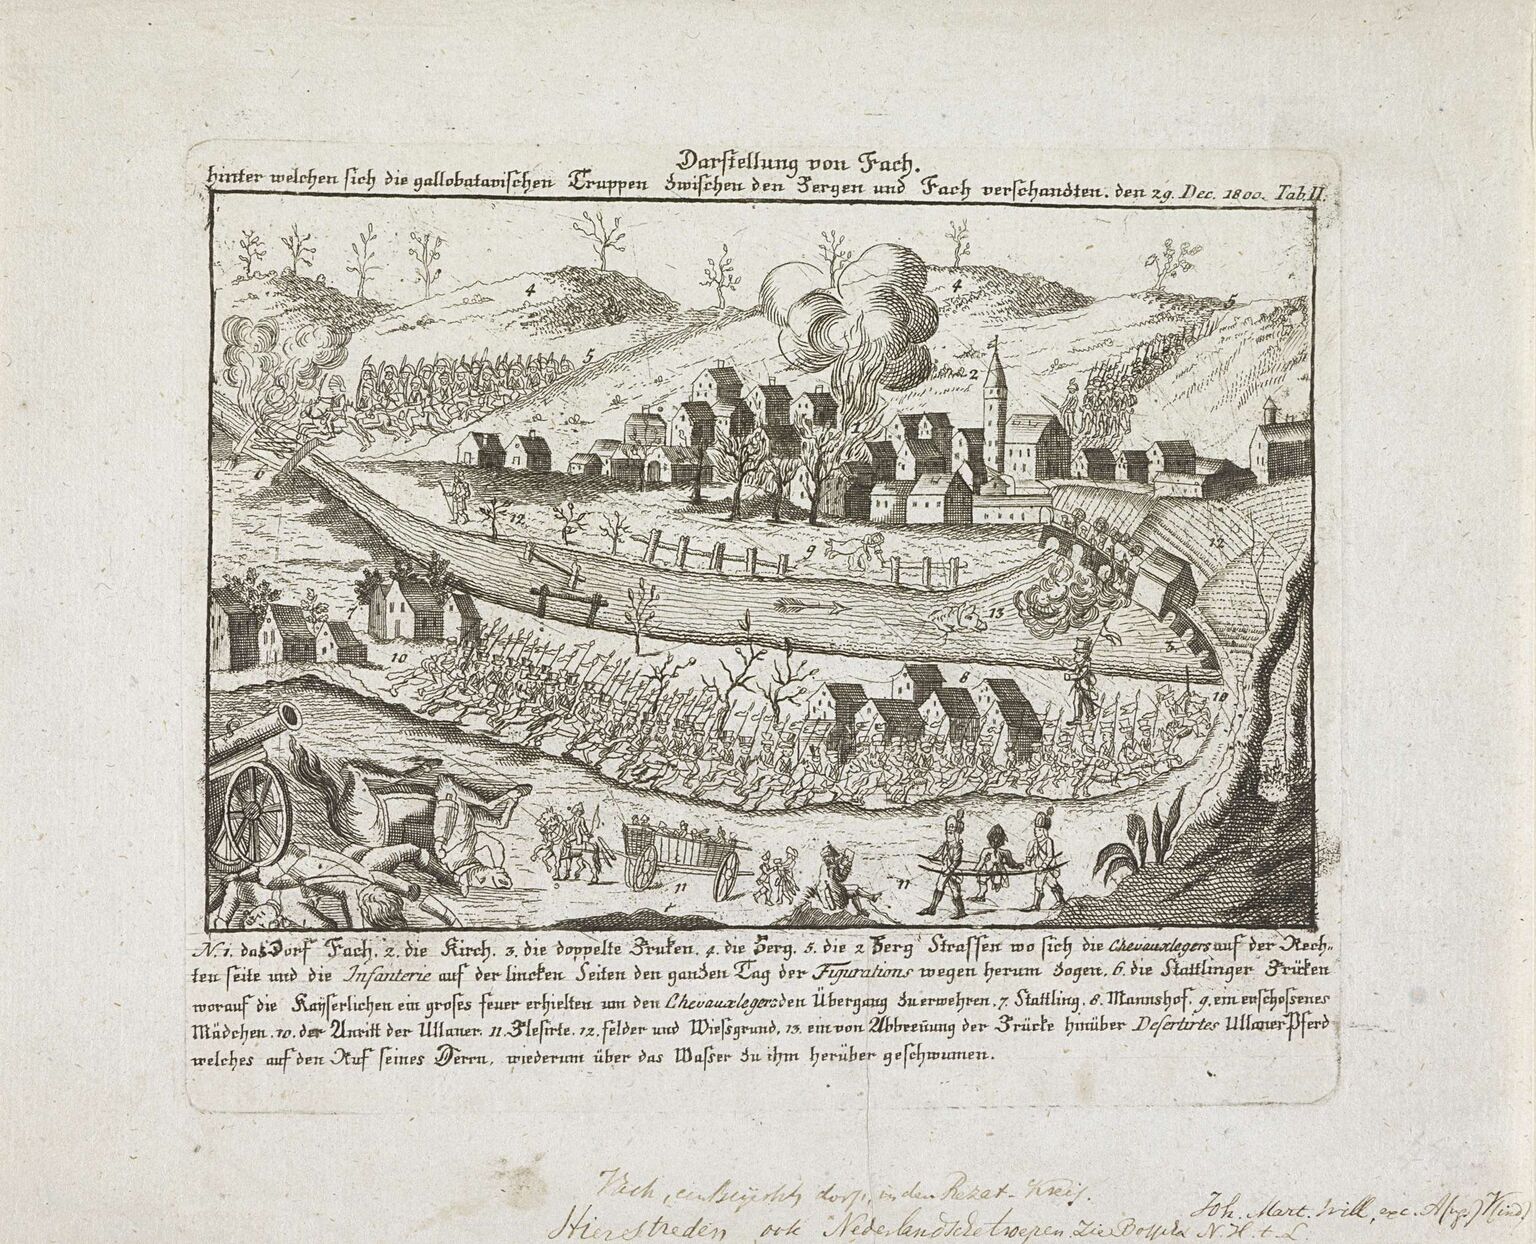 Darstellung von Fach.
hinter welchen sich die gallobatavischen Truppen zwischen den Bergen und Fach verschanzten. den 29. Dec. 1800. Tab. II.
4
4
5
5
2
1
6
12
9
12
13
3
7
10
8
10
11
11
N. 1. das Dorf Fach. 2. die Kirch. 3. die doppelte Bruken. 4. die Berg. 5. die 2 Berg Strassen wo sich die Chevauxlegers auf der Rech-
ten seite und die Infanterie auf der lincken Seiten den ganzen Tag der Figurations wegen herum zogen. 6. die Stattlinger Brücken
worauf die Kayserlichen ein groses feuer erhielten um den Chevauxlegers den Übergang zu erwehren. 7. Stattling. 8. Mannshof. 9. ein erschossenes
Mädchen. 10. der Anritt der Ullaner. 11. Blesirte. 12. felder und Wiessgrund. 13. ein von Abbrenung der Brücke hinüber Desertirtes Ullaner Pferd
welches auf den Ruf seines Herrn, wiederum über das Wasser zu ihm herüber geschwumen.
Vach, ein dorf, in den Rezat-Kreis.
Hier streden ook Nederlandsche troepen Zie Bosscha N. H. t. L.
Joh. Mart. Will, exc. A.